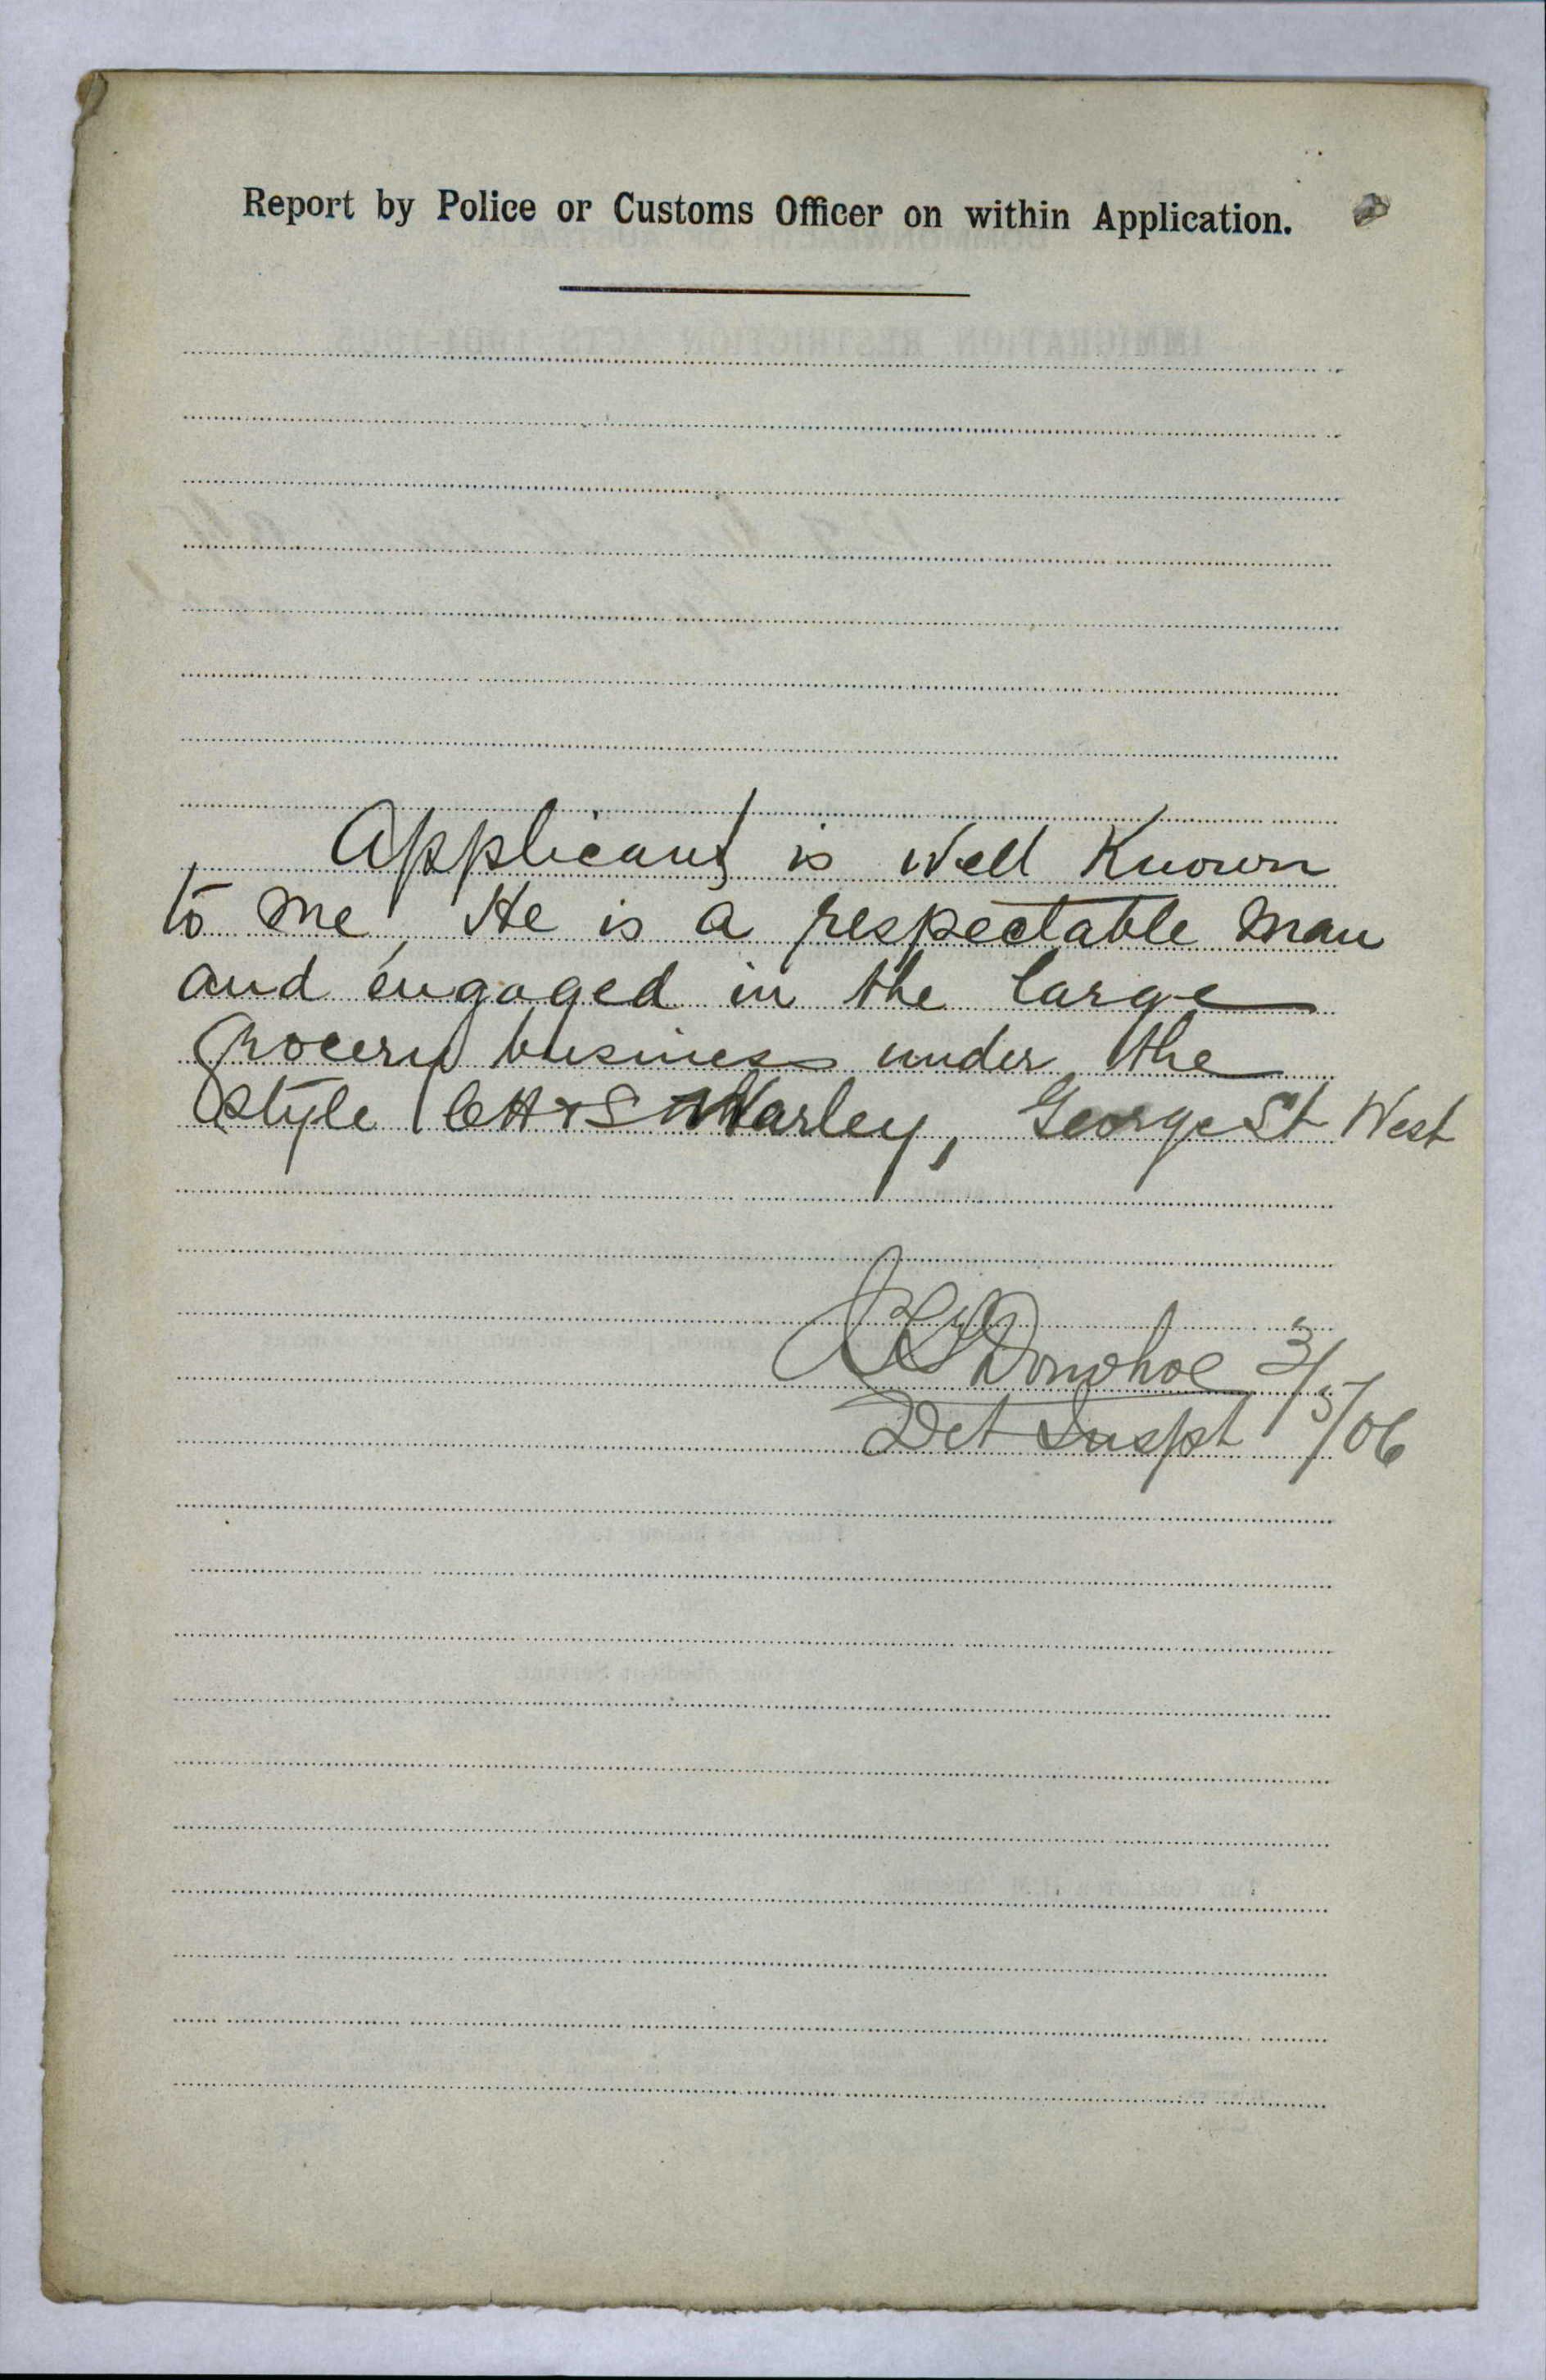 Report by Police or Customs Officer on within Application.
Applicant is Well Known
to me, He is a respectable man
and engaged in the large
Grocery business under the
style CH & S Warley, George St West
Donohoe 3/5/06
Det Inspt